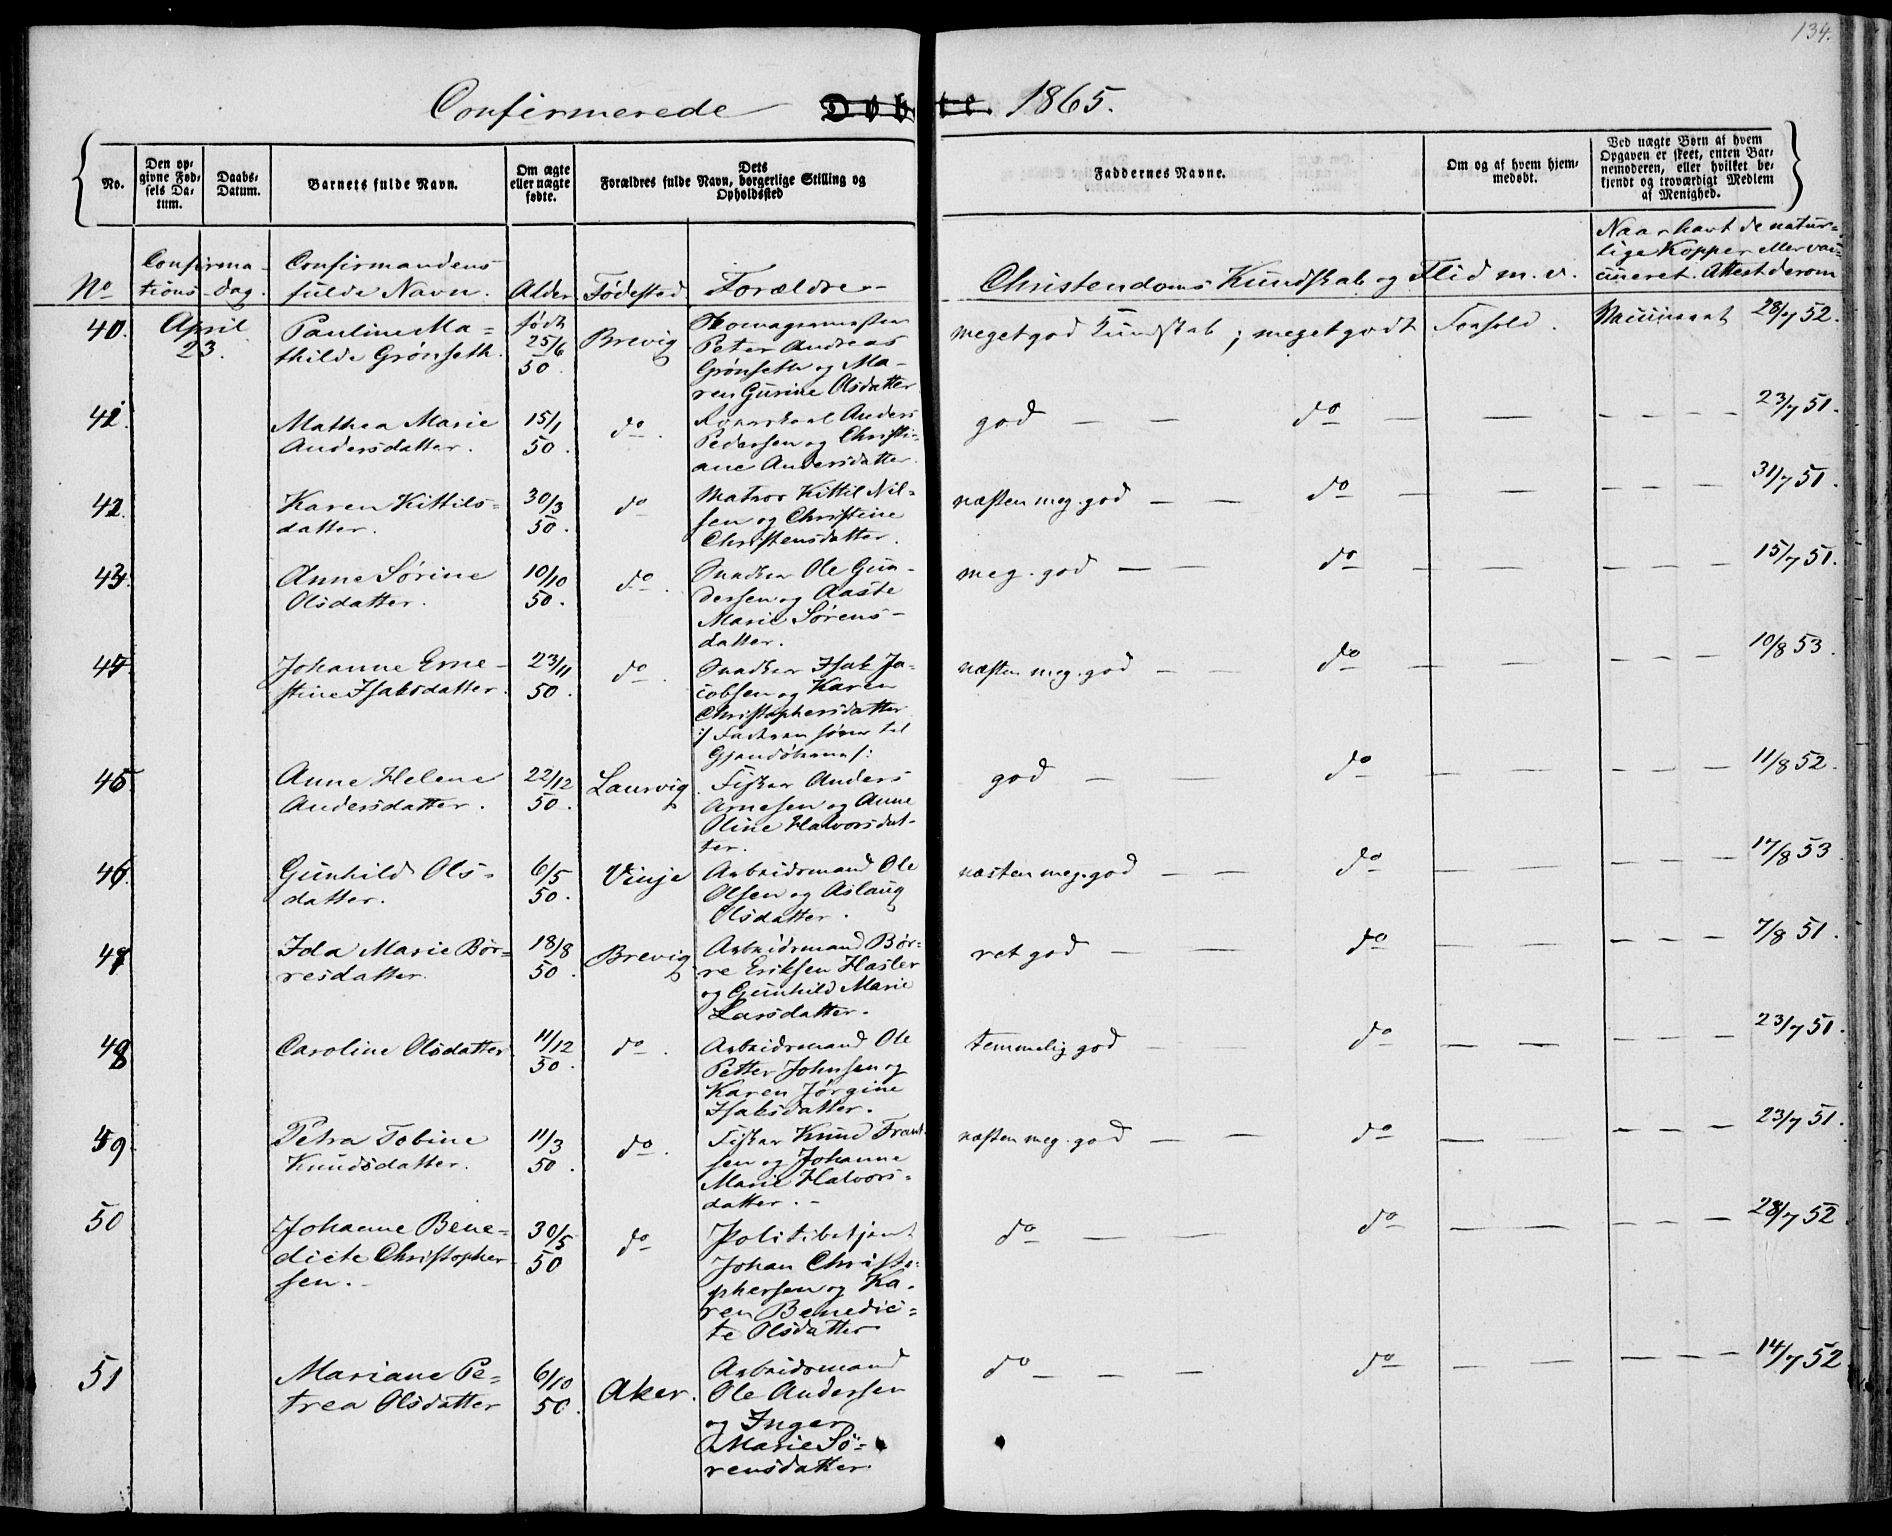 134.
Confirmerede Døbte. 1865.
No.
Den op-
givne Fød-
sels Da-
tum.
Daabs-
Datum.
Barnets fulde Navn.
Om ægte
eller uægte
fødte.
Dets
Forældres fulde Navn, borgerlige Stilling og
Opholdssted
Faddernes Navne.
Om og af hvem hjem-
medøbt.
Ved uægte Børn af hvem
Opgaven er skeet, enten Bar-
nemoderen, eller hvilket be-
kjendt og troværdigt Medlem
af Menighed.
No
Confirma-
tions dag.
Confirmandens
fulde Navn.
Alder
Fødested
Forældre
Christendoms Kundskab og Flid m. v.
Naar havt de natur-
lige Kopper eller vac-
cineret. Attest derom
40.
April
23.
Pauline Ma-
thilde Grønseth.
født
25/6
50.
Brevig
Peter Andreas
Grønseth og Ma-
ren Gurine Olsdatter
meget god Kundskab; meget godt Forhold.
Vaccineret 28/7 52.
41.
Mathea Marie
Andersdatter.
15/1
50.
do.
Anders
Pedersen og Christi-
ane Andersdatter.
god — — do — — — — —
23/7 51.
42.
Karen Kittils-
datter.
30/3
50.
do
Matros Kittil Nil-
sen og Christine
Christensdatter.
næsten meg. god — — do — — — — —
31/7 51.
43.
Anne Sørine
Olsdatter.
10/10
50.
do.
Snedker Ole Gun-
dersen og Aaste
Marie Sørens-
datter.
meg. god — — do — — — — —
15/7 51.
44.
Johanne Erne-
stine Isaksdatter.
23/11
50.
do.
Snedker Isak Ja-
cobsen og Karen
Christophersdatter
til
næsten meg. god — — do — — — — —
10/8 53.
45.
Anne Helene
Andersdatter.
22/12
50.
Laurvig
Fisker Anders
Arnesen og Anne
Oline Halvorsdat-
ter.
god — — do — — — — —
11/8 52.
46.
Gunhild Ols-
datter.
6/5
50.
Vinje
Arbeidsmand Ole
Olsen og Aslaug
Olsdatter.
næsten meg. god — — do — — — — —
17/8 53
47.
Ida Marie Bør-
resdatter.
18/8
50.
Brevig
Arbeidsmand Bør-
re Eriksen Hasler
og Gunhild Marie
Larsdatter.
ret god — — do — — — — —
7/8 51.
48
Caroline Olsdatter
11/12
50.
do.
Arbeidsmand Ole
Petter Johnsen og
Karen Jørgine
Isaksdatter.
temmelig god — — do — — — — —
23/7 51.
49
Petra Tobine
Knudsdatter.
11/3
50.
do.
Fisker Knud Frant-
sen og Johanne
Marie Halvors-
datter.
næsten meg. god — — do — — — — —
23/7 51.
50
Johanne Bene-
dicte Christopher-
sen.
30/5
50
do
Politibetjent
Johan Christo-
phersen og Ka-
ren Benedic-
te Olsdatter
do — — — do — — — — —
28/7 52
51
Mariane Pe-
trea Olsdatter
6/10
50.
Aker.
Arbeidsmand
Ole Andersen
og Inger
Marie Sö-
rensdatter.
do — — — do — — — — —
14/7 52